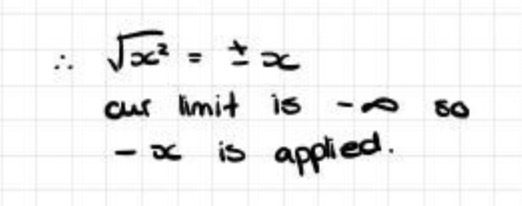 ∴ √x² = ± x
our limit is -∞ so
- x is applied.